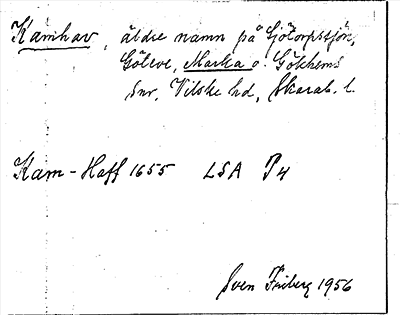 Kamhav, äldre namn på Gjötorpssjön,
Göteve, Marka o. Gökhems
snr, Vilske hd, Skarab. l.
Kam-Haff 1655 LSA P4
Sven Friberg 1956